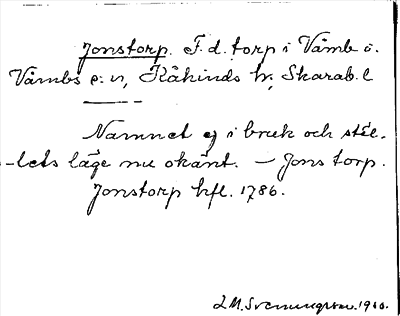 Jonstorp. F. d. torp i Våmb i
Våmbs s:n, Kåkinds hr, Skarab. l
Namnet ej i bruk och stäl-
-lets läge nu okänt. – Jons torp.
Jonstorp hfl. 1786.